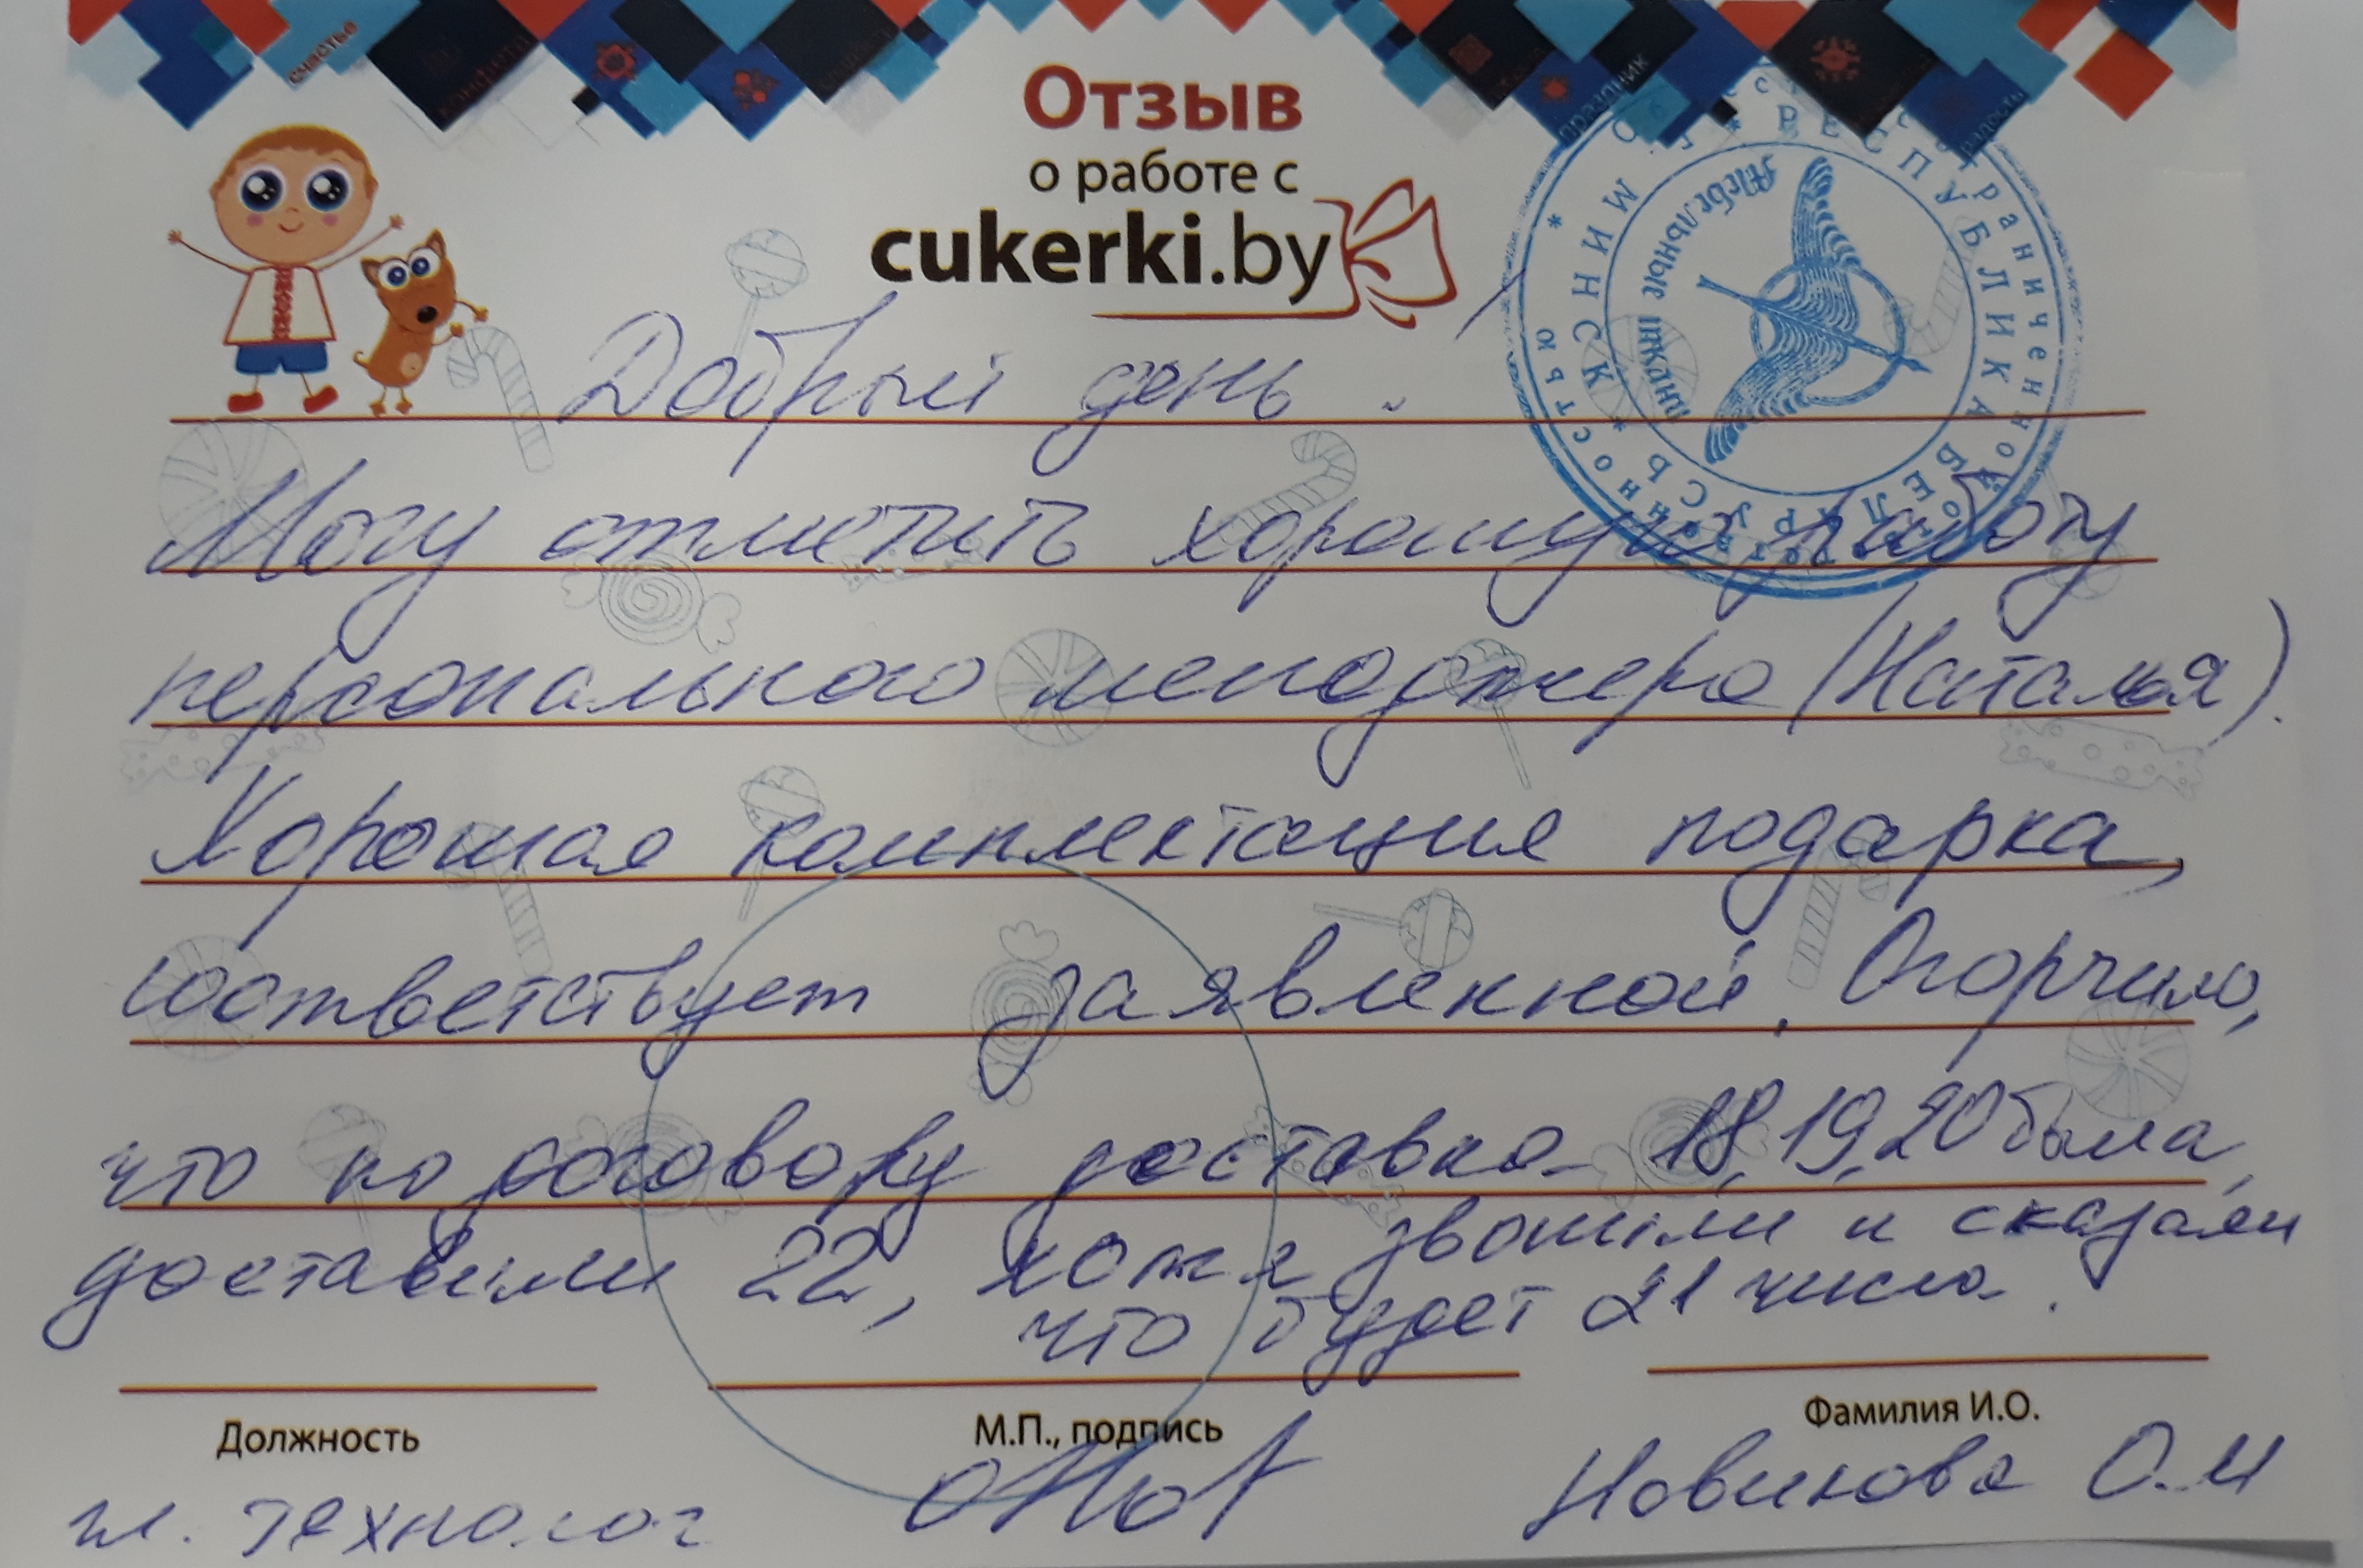 счастье
конфета
праздник
радость
Отзыв
о работе с
cukerki.by
Добрый день.
Могу отметить хорошую работу
персонального менеджера (Наталья).
Хорошая комплектация подарка,
соответствует заявленной. Огорчило,
что по договору доставка 18,19,20 была,
доставили 22, хотя звонили и сказали
что будет 21 числа.
Должность
М.П., подпись
Фамилия И.О.
гл. технолог
Новикова О.И
РЕСПУБЛИКА БЕЛАРУСЬ * Г. МИНСК *
ограниченной ответственностью *
Мебельные